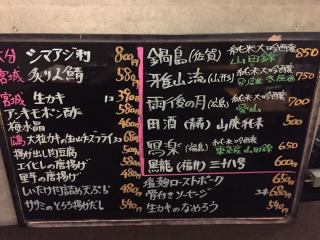 大分 シマアジ刺 800円
宮城 炙り〆鯖 580円
宮城 生カキ 1コ 390円
アンキモポン酢 580円
梅水晶 480円
広島 大粒カキの生山椒フライ 2コ 680円
揚げ出し肉豆腐 580円
エイヒレの唐揚げ 580円
里芋の唐揚げ 480円
しいたけ肉詰め天ぷら 480円
ササミのとろろ揚げだし 540円
鍋島(佐賀) 純米大吟醸 山田錦 850
雅山流(山形) 純米大吟醸 750
雨後の月(広島) 純米大吟醸 700
田酒(青森) 山廃純米 500
黒龍(福井) 三十八号 600円
塩麹ローストポーク 650円
骨付きソーセージ 2本 680円
生カキのなめろう 540円